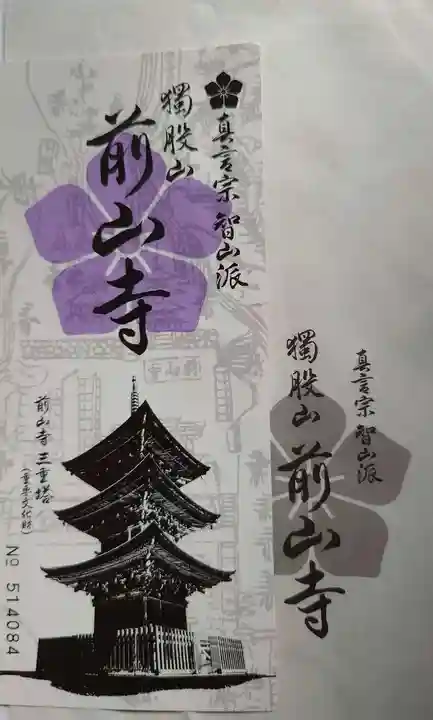 真言宗 智山派
獨股山
前山寺
前山寺 三重塔
(重要文化財)
No 514084
真言宗 智山派
獨股山 前山寺